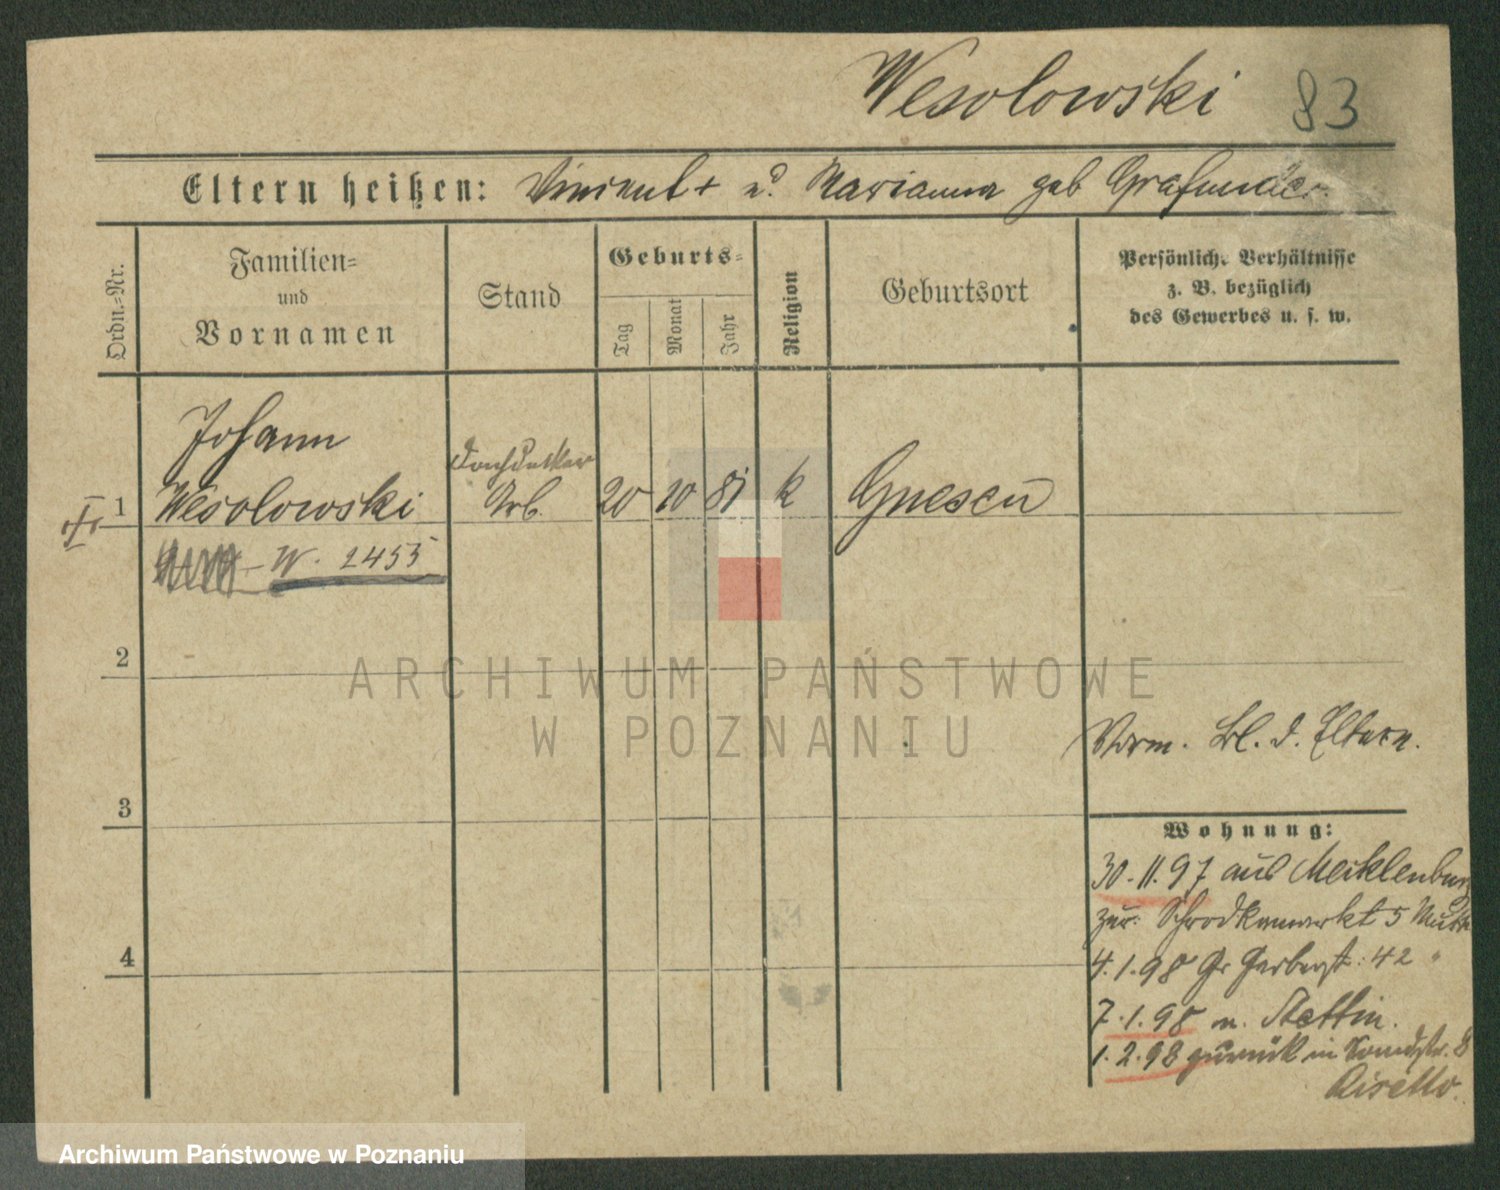 Wesolowski 83
Eltern heißen: Vincent + u. Marianna geb Grafunder.
Ordn.-Nr.
Familien-
und
Vornamen
Stand
Geburts-
Tag
Monat
Jahr
Religion
Geburtsort
Persönlich. Verhältnisse
z. B. bezüglich
des Gewerbes u. s. w.
Johann
Dachdecker
1 Wesolowski Arb. 20 10 81 k Gnesen
W. 2455
2
Vorm. Bl. d. Eltern.
3
Wohnung:
30.11.97 aus Mecklenburg
zur. Schrodkamarkt 5 Mutter
4.1.98 Gr Gerberst: 42 "
4
7.1.98 n. Stettin.
1.2.98 zurück in 8
ARCHIWUM PAŃSTWOWE
W POZNANIU
Archiwum Państwowe w Poznaniu